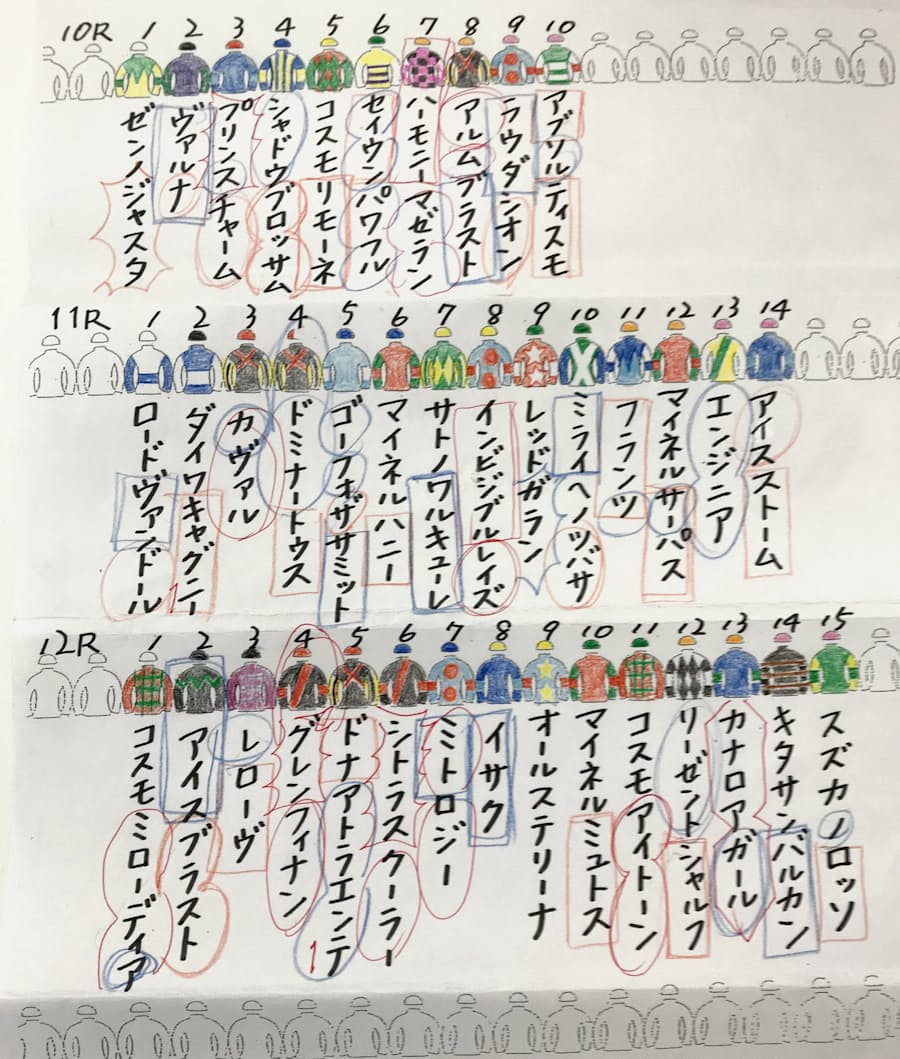 10R 1 2 3 4 5 6 7 8 9 10
ゼンノジャスタ
ヴァルナ
プリンスチャーム
シャドウブロッサム
コスモリモーネ
セイウンパワフル
ハーモニーマゼラン
アルムブラスト
ラウダシオン
アブソルティスモ
11R 1 2 3 4 5 6 7 8 9 10 11 12 13 14
ロードヴァンドール
ダイワキャグニー
カヴァル
ドミナートゥス
ゴーフォザサミット
マイネルハニー
サトノワルキューレ
インビジブルレイズ
レッドガラン
ミライヘノツバサ
フランツ
マイネルサーパス
エンジニア
アイスストーム
1
12R 1 2 3 4 5 6 7 8 9 10 11 12 13 14 15
コスモミローディア
アイスブラスト
レローヴ
グレンフィナン
ドナアトラエンテ
シトラスクーラー
ミトロジー
イサク
オールステリーナ
マイネルミュトス
コスモアイトーン
リーゼントシャルフ
カナロアガール
キタサンバルカン
スズカノロッソ
1